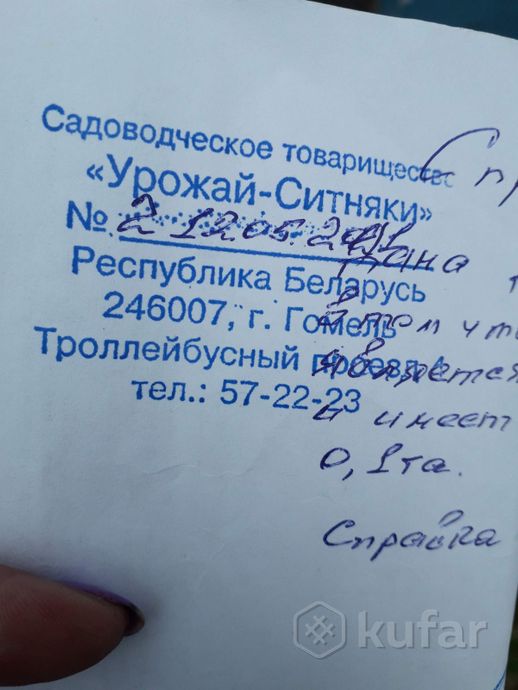 Садоводческое товарищество
«Урожай-Ситняки»
№ 2 12.05.2011
Республика Беларусь
246007, г. Гомель
Троллейбусный проезд 4
тел.: 57-22-23
Спр
Дана
в том что
является
и имеет
0,1га.
Справка
kufar